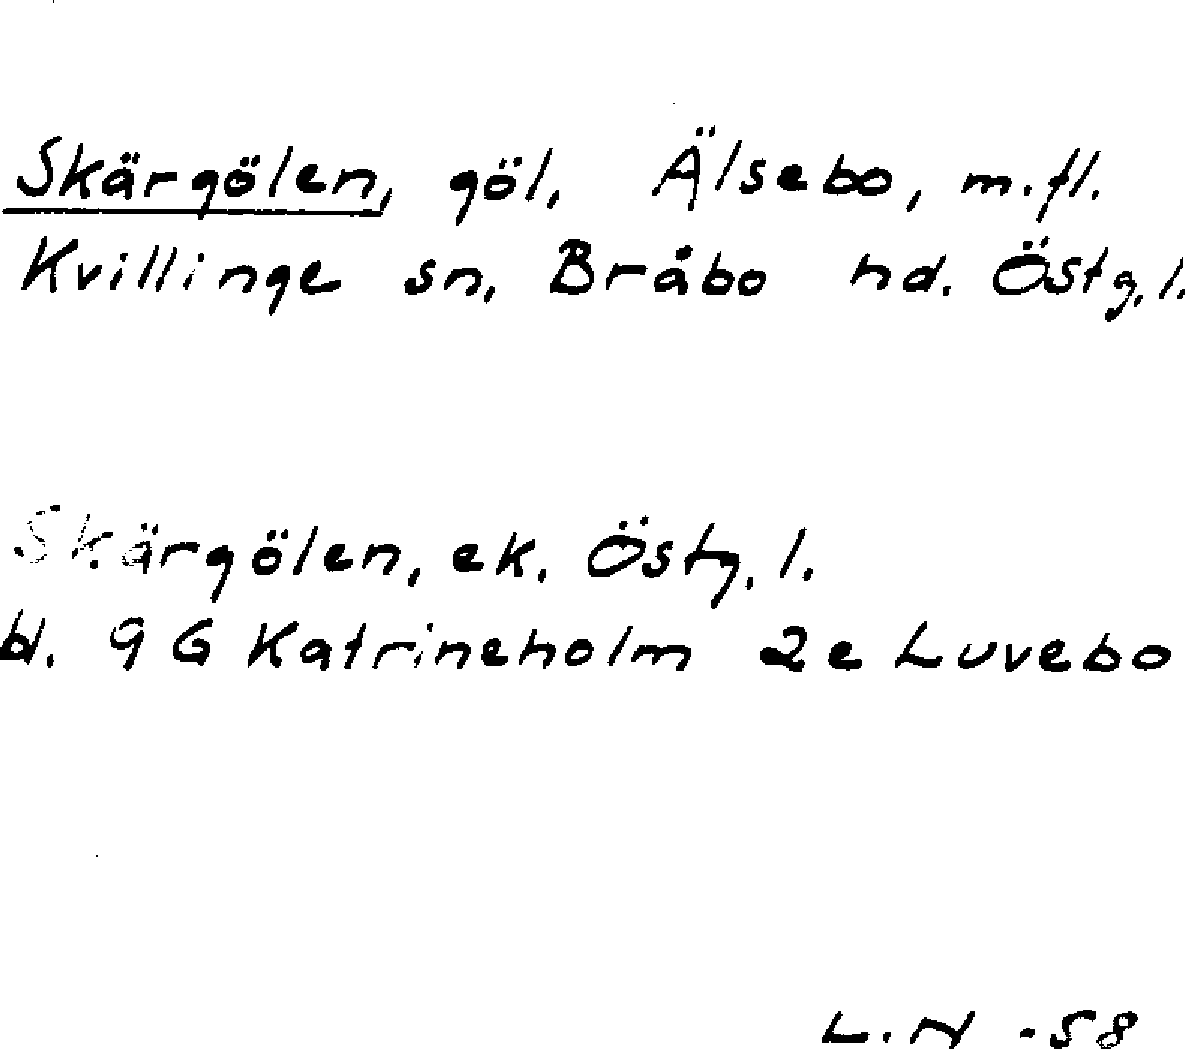 Skärgölen, göl, Älsebo, m.fl.
Kvillinge sn, Bråbo hd. Östg.l.
Skärgölen, ek. Östg.l.
bl. 9 G Katrineholm 2e Luvebo
L.N -58